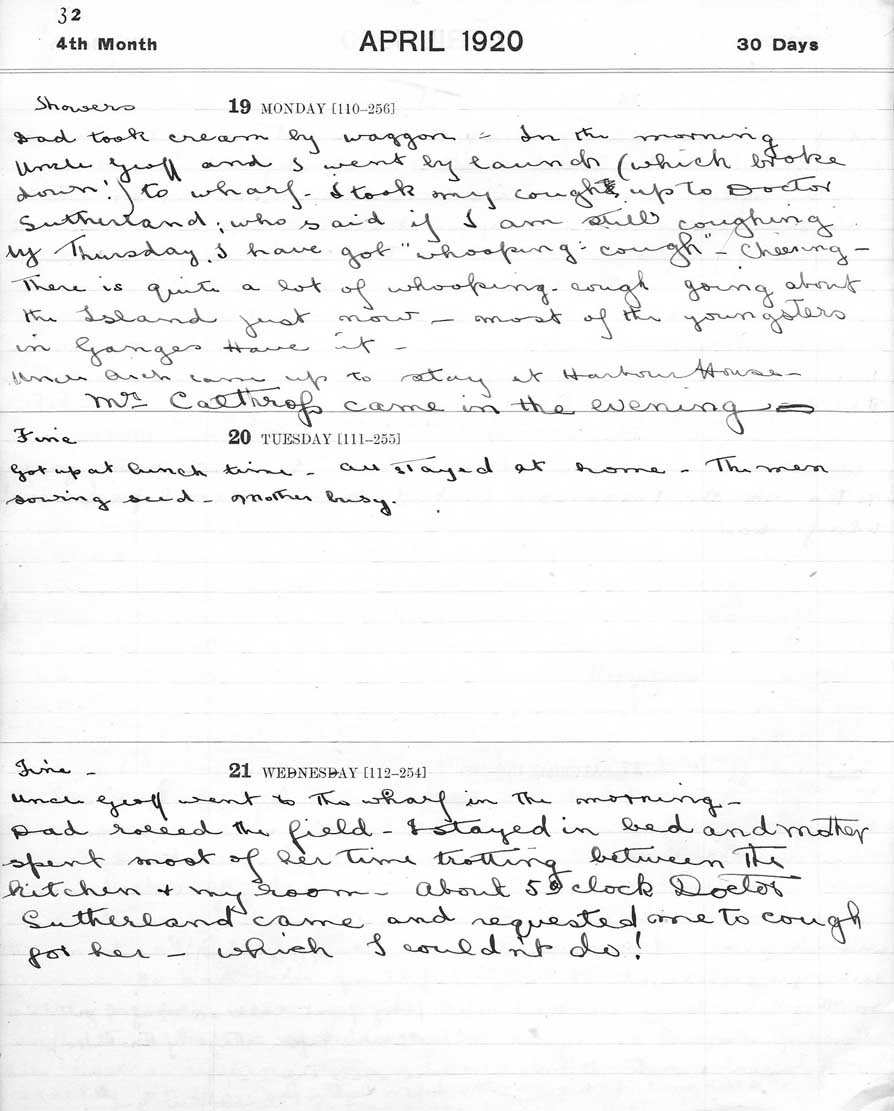 32
4th Month APRIL 1920 30 Days
Showers 19 MONDAY [110–256]
Dad took cream by waggon – In the morning
Uncle Geoff and I went by launch (which broke
down!) to wharf – I took my cough up to Doctor
Sutherland; who said if I am still coughing
by Thursday, I have got "whooping-cough" – Cheering –
There is quite a lot of whooping-cough going about
the Island just now – most of the youngsters
in Ganges have it –
Uncle Arch came up to stay at Harbour House –
Mrs Calthrop came in the evening –
Fine 20 TUESDAY [111–255]
Got up at lunch time – All stayed at home – The men
sowing seed – Mother busy.
Fine – 21 WEDNESDAY [112–254]
Uncle Geoff went to the wharf in the morning –
Dad rolled the field – I stayed in bed and mother
spent most of her time trotting between the
kitchen + my room – About 5 O'clock Doctor
Sutherland came and requested me to cough
for her – which I couldn't do!